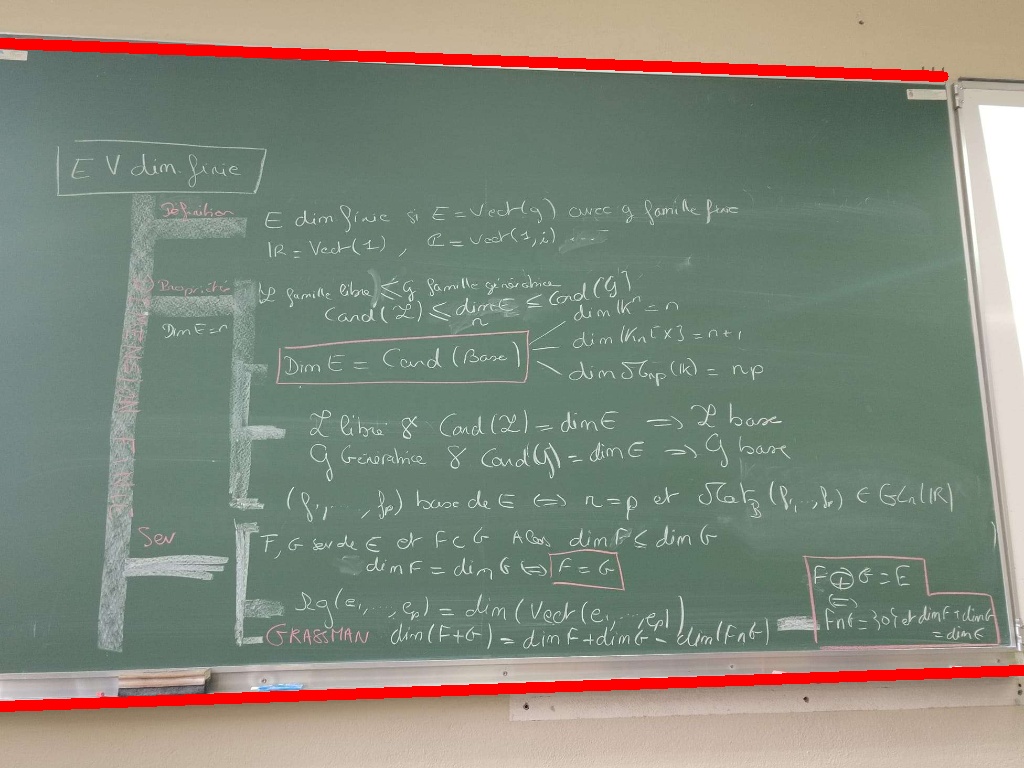 E V dim. finie
Définition
E dim finie si E = Vect(g) avec g famille finie
IR = Vect(1) , ℂ = Vect(1,i) ....
Propriété
L famille libre ≤ G famille génératrice
Card(L) ≤ dim E ≤ Card(G)
n
Dim E = n
DIMENSION FINIE
Dim E = Card (Base)
dim IKⁿ = n
dim IKn[X] = n+1
dim Mnp(IK) = np
L libre & Card(L) = dim E ⇒ L base
G Génératrice & Card(G) = dim E ⇒ G base
(f1, ..., fp) base de E ⇔ n = p et Mat B (f1, .., fp) ∈ GLn(IR)
Sev
F, G sev de E et F ⊂ G Alors dim F ≤ dim G
dim F = dim G ⇔ F = G
Rg(e1, ..., ep) = dim(Vect(e1, ..., ep))
GRASSMAN dim(F+G) = dim F + dim G - dim(F∩G)
F ⊕ G = E
⇔
F∩G = {0} et dim F + dim G
= dim E